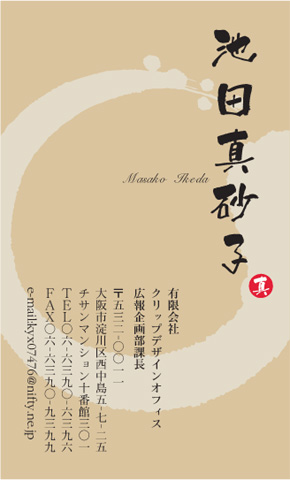 池田真砂子
真
Masako Ikeda
有限会社
クリップデザインオフィス
広報企画部課長
〒五三二-〇〇一一
大阪市淀川区西中島五-七-二五
チサンマンション十番館三〇一
TEL〇六-六三九〇-六三九六
FAX〇六-六三九〇-九三九九
e-mailkyx07476@nifty.ne.jp